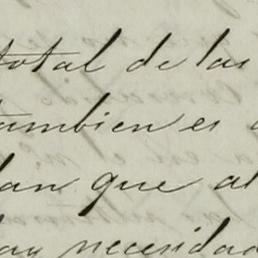 total de las
tambien es
dan que al
hay necesidad